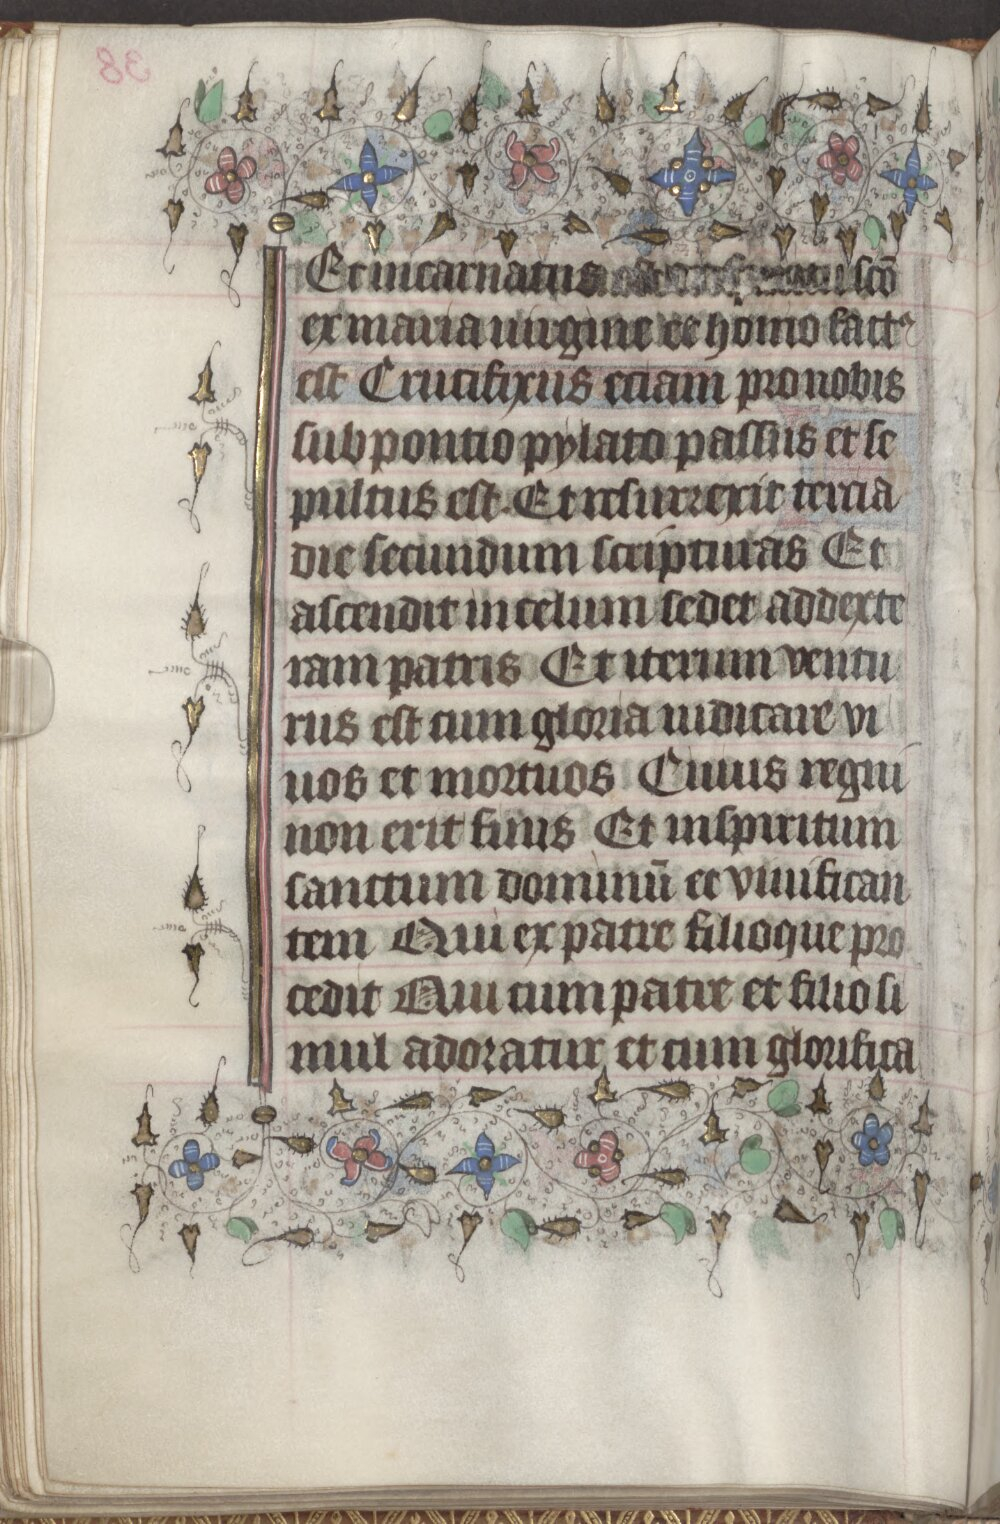 Et incarnatus est scō
ex maria uirgine et homo fact⁹
est Crucifixus eciam pro nobis
sub pontio pylato passus et se
pultus est. Et resurrexit tercia
die secundum scripturas Et
ascendit in celum sedet ad dexte
ram patris Et iterum ventu
rus est cum gloria iudicare vi
uos et mortuos Cuius regni
non erit finis Et in spiritum
sanctum dominū et viuifican
tem Qui ex patre filioque pro
cedit Qui cum patre et filio si
mul adoratur et cum glorifica